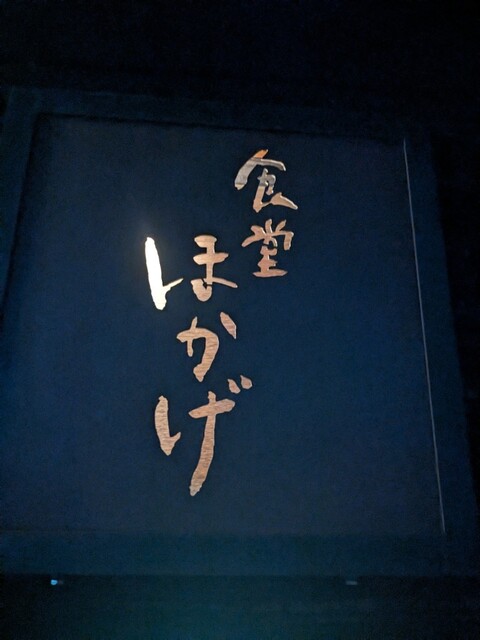 食堂
ほかげ